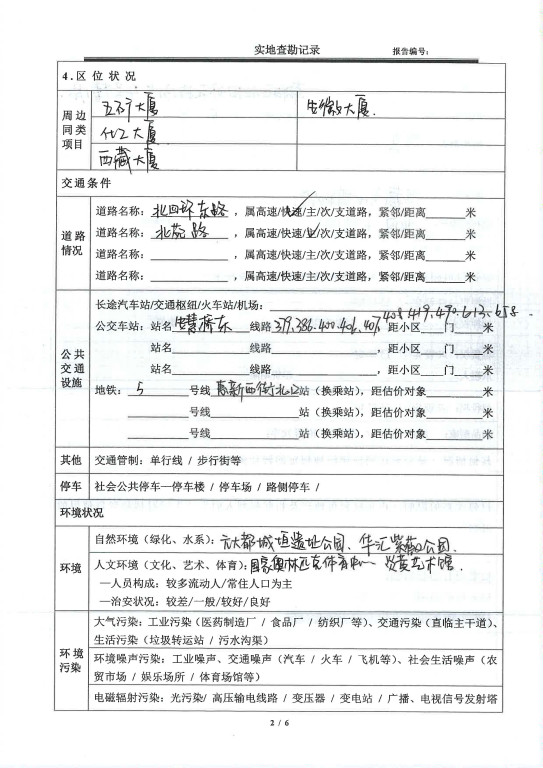 实地查勘记录 报告编号:
4.区位状况
周边同类项目
五矿大厦 生物大厦.
化工大厦
西藏大厦
交通条件
道路情况
道路名称: 北四环东路 ,属高速/快速/主/次/支道路,紧邻/距离______米
道路名称: 北苑路 ,属高速/快速/主/次/支道路,紧邻/距离______米
道路名称:____________ ,属高速/快速/主/次/支道路,紧邻/距离______米
道路名称:____________ ,属高速/快速/主/次/支道路,紧邻/距离______米
公共交通设施
长途汽车站/交通枢纽/火车站/机场:
公交车站:站名 慧桥东 线路 379.386.400.406.407 408.419.490.613.658. ,距小区____门____米
站名________ 线路________________ ,距小区____门____米
站名________ 线路________________ ,距小区____门____米
地铁: 5 号线 惠新西街北口 站(换乘站),距估价对象________米
________号线____________站(换乘站),距估价对象________米
________号线____________站(换乘站),距估价对象________米
其他 交通管制:单行线 / 步行街等
停车 社会公共停车—停车楼 / 停车场 / 路侧停车 /
环境状况
环境
自然环境(绿化、水系): 元大都城垣遗址公园、华汇紫薇公园.
人文环境(文化、艺术、体育): 国家奥林匹克体育中心 炎黄艺术馆.
—人员构成:较多流动人/常住人口为主
—治安状况:较差/一般/较好/良好
环境污染
大气污染:工业污染(医药制造厂 / 食品厂 / 纺织厂等)、交通污染(直临主干道)、
生活污染(垃圾转运站 / 污水沟渠)
环境噪声污染:工业噪声、交通噪声(汽车 / 火车 / 飞机等)、社会生活噪声(农
贸市场 / 娱乐场所 / 体育场馆等)
电磁辐射污染:光污染/ 高压输电线路 / 变压器 / 变电站 / 广播、电视信号发射塔
2 / 6